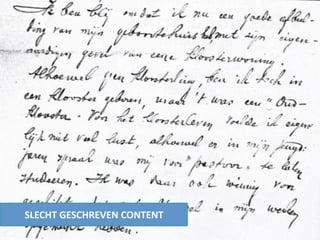 Ik ben blij omdat ik nu een goede afbeel-
ding van mijn geboortehuis heb met zijn eigen-
aardigen gevel van eene kloosterwoning.
Alhoewel geen kloosterling ben ik toch in
een klooster geboren, maar 't was een "Oud-
klooster. Voor het kloosterleven voelde ik eigen-
lijk niet veel lust, alhoewel er in mijn jeugd-
jaren spraak was mij voor "pastoor" te laten
studeeren. Ik was daar ook weinig voor
in mijn weken
hebben.
SLECHT GESCHREVEN CONTENT